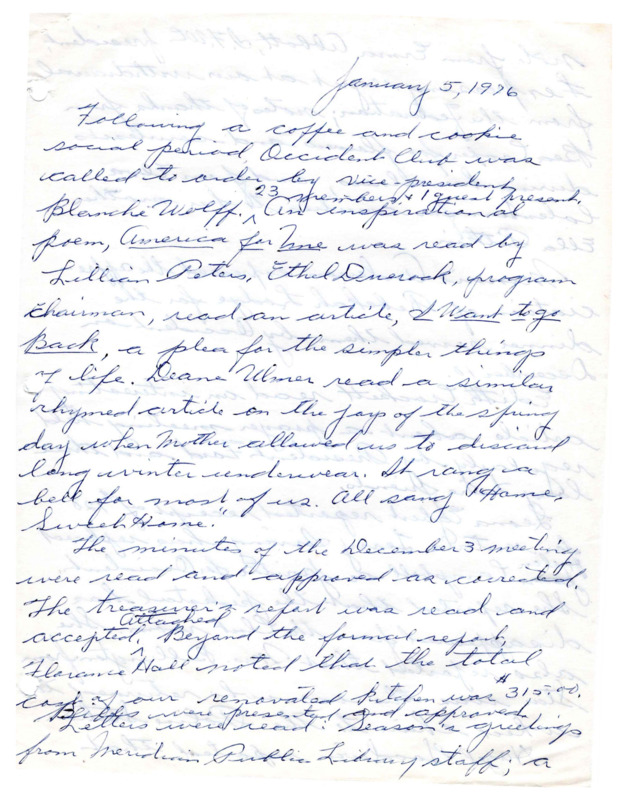 January 5, 1976
Following a coffee and cookie
social period, Occident Club was
called to order by vice president,
Blanche Wolff. 23 members & 1 guest present.
An inspirational
poem, America for Me was read by
Lillian Peters. Ethel, program
chairman, read an article, I Want to go
Back, a plea for the simpler things
of life. Deane Ulmer read a similar
rhymed article on the joys of the spring
day when Mother allowed us to discard
long winter underwear. It rang a
bell for most of us. All sang "Home,
Sweet Home."
The minutes of the December 3 meeting
were read and approved as corrected.
The treasurer's report was read and
accepted, Attached. Beyond the formal report,
Florence Hall noted that the total
cost of our renovated kitchen was $315.00.
Bills were presented and approved.
Letters were read: Season's greetings
from Meridian Public Library staff; a